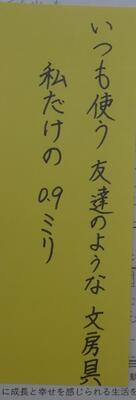 いつも使う友達のような文房具
私だけの0.9ミリ
に成長と幸せを感じられる生活を